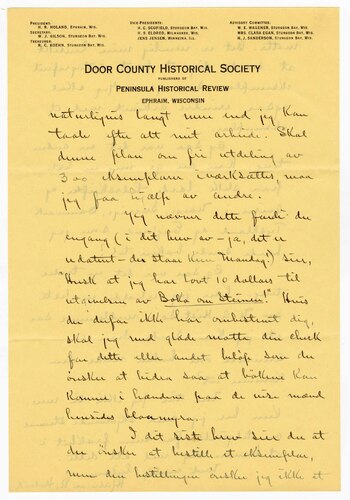 PRESIDENT:
H. R. HOLAND, EPHRAIM, WIS.
SECRETARY:
W. J. GILSON, STURGEON BAY, WIS.
TREASURER:
R. C. KOEHN, STURGEON BAY, WIS.
VICE-PRESIDENTS:
H. C. SCOFIELD, STURGEON BAY, WIS.
H. S. ELDRED, MILWAUKEE, WIS.
JENS JENSEN, WINNETKA, ILL.
ADVISORY COMMITTEE:
W. E. WAGENER, STURGEON BAY, WIS.
MRS. CLARA EGAN, STURGEON BAY, WIS.
H. J. SANDERSON, STURGEON BAY, WIS.
DOOR COUNTY HISTORICAL SOCIETY
PUBLISHERS OF
PENINSULA HISTORICAL REVIEW
EPHRAIM, WISCONSIN
naturligvis langt mere end jeg kan
taale efter alt mit arbeide. Skal
denne plan om fri utdeling av
300 eksemplarer iverksættes, maa
jeg faa hjælp av andre.
Jeg nævner dette fordi du
engang (i dit brev av – ja, det er
udatert – der staar kun "Monday") sier,
"Husk at jeg har lovt 10 dollars til
utgivelsen av Boka om Steinen!" Hvis
du derfor ikke har ombestemt dig,
skal jeg med glæde motta din check
for dette eller andet beløp som du
ønsker at bidra saa at bøkene kan
komme i hændene paa de vise mænd
hinsides blaamyra.
I dit siste brev sier du at
du ønsker at bestille et eksemplar,
men den bestillingen ønsker jeg ikke at